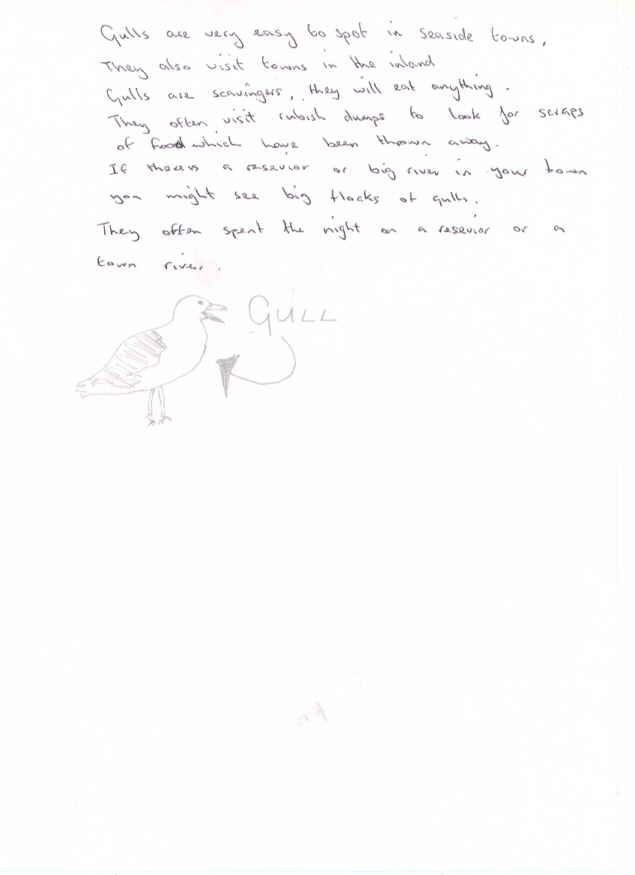 Gulls are very easy to spot in seaside towns.
They also visit towns in the inland
Gulls are scavingers, they will eat anything.
They often visit rubish dumps to look for scraps
of food which have been thrown away.
If theres a resevior or big river in your town
you might see big flocks of gulls.
They often spent the night on a resevior or a
town river.
GULL